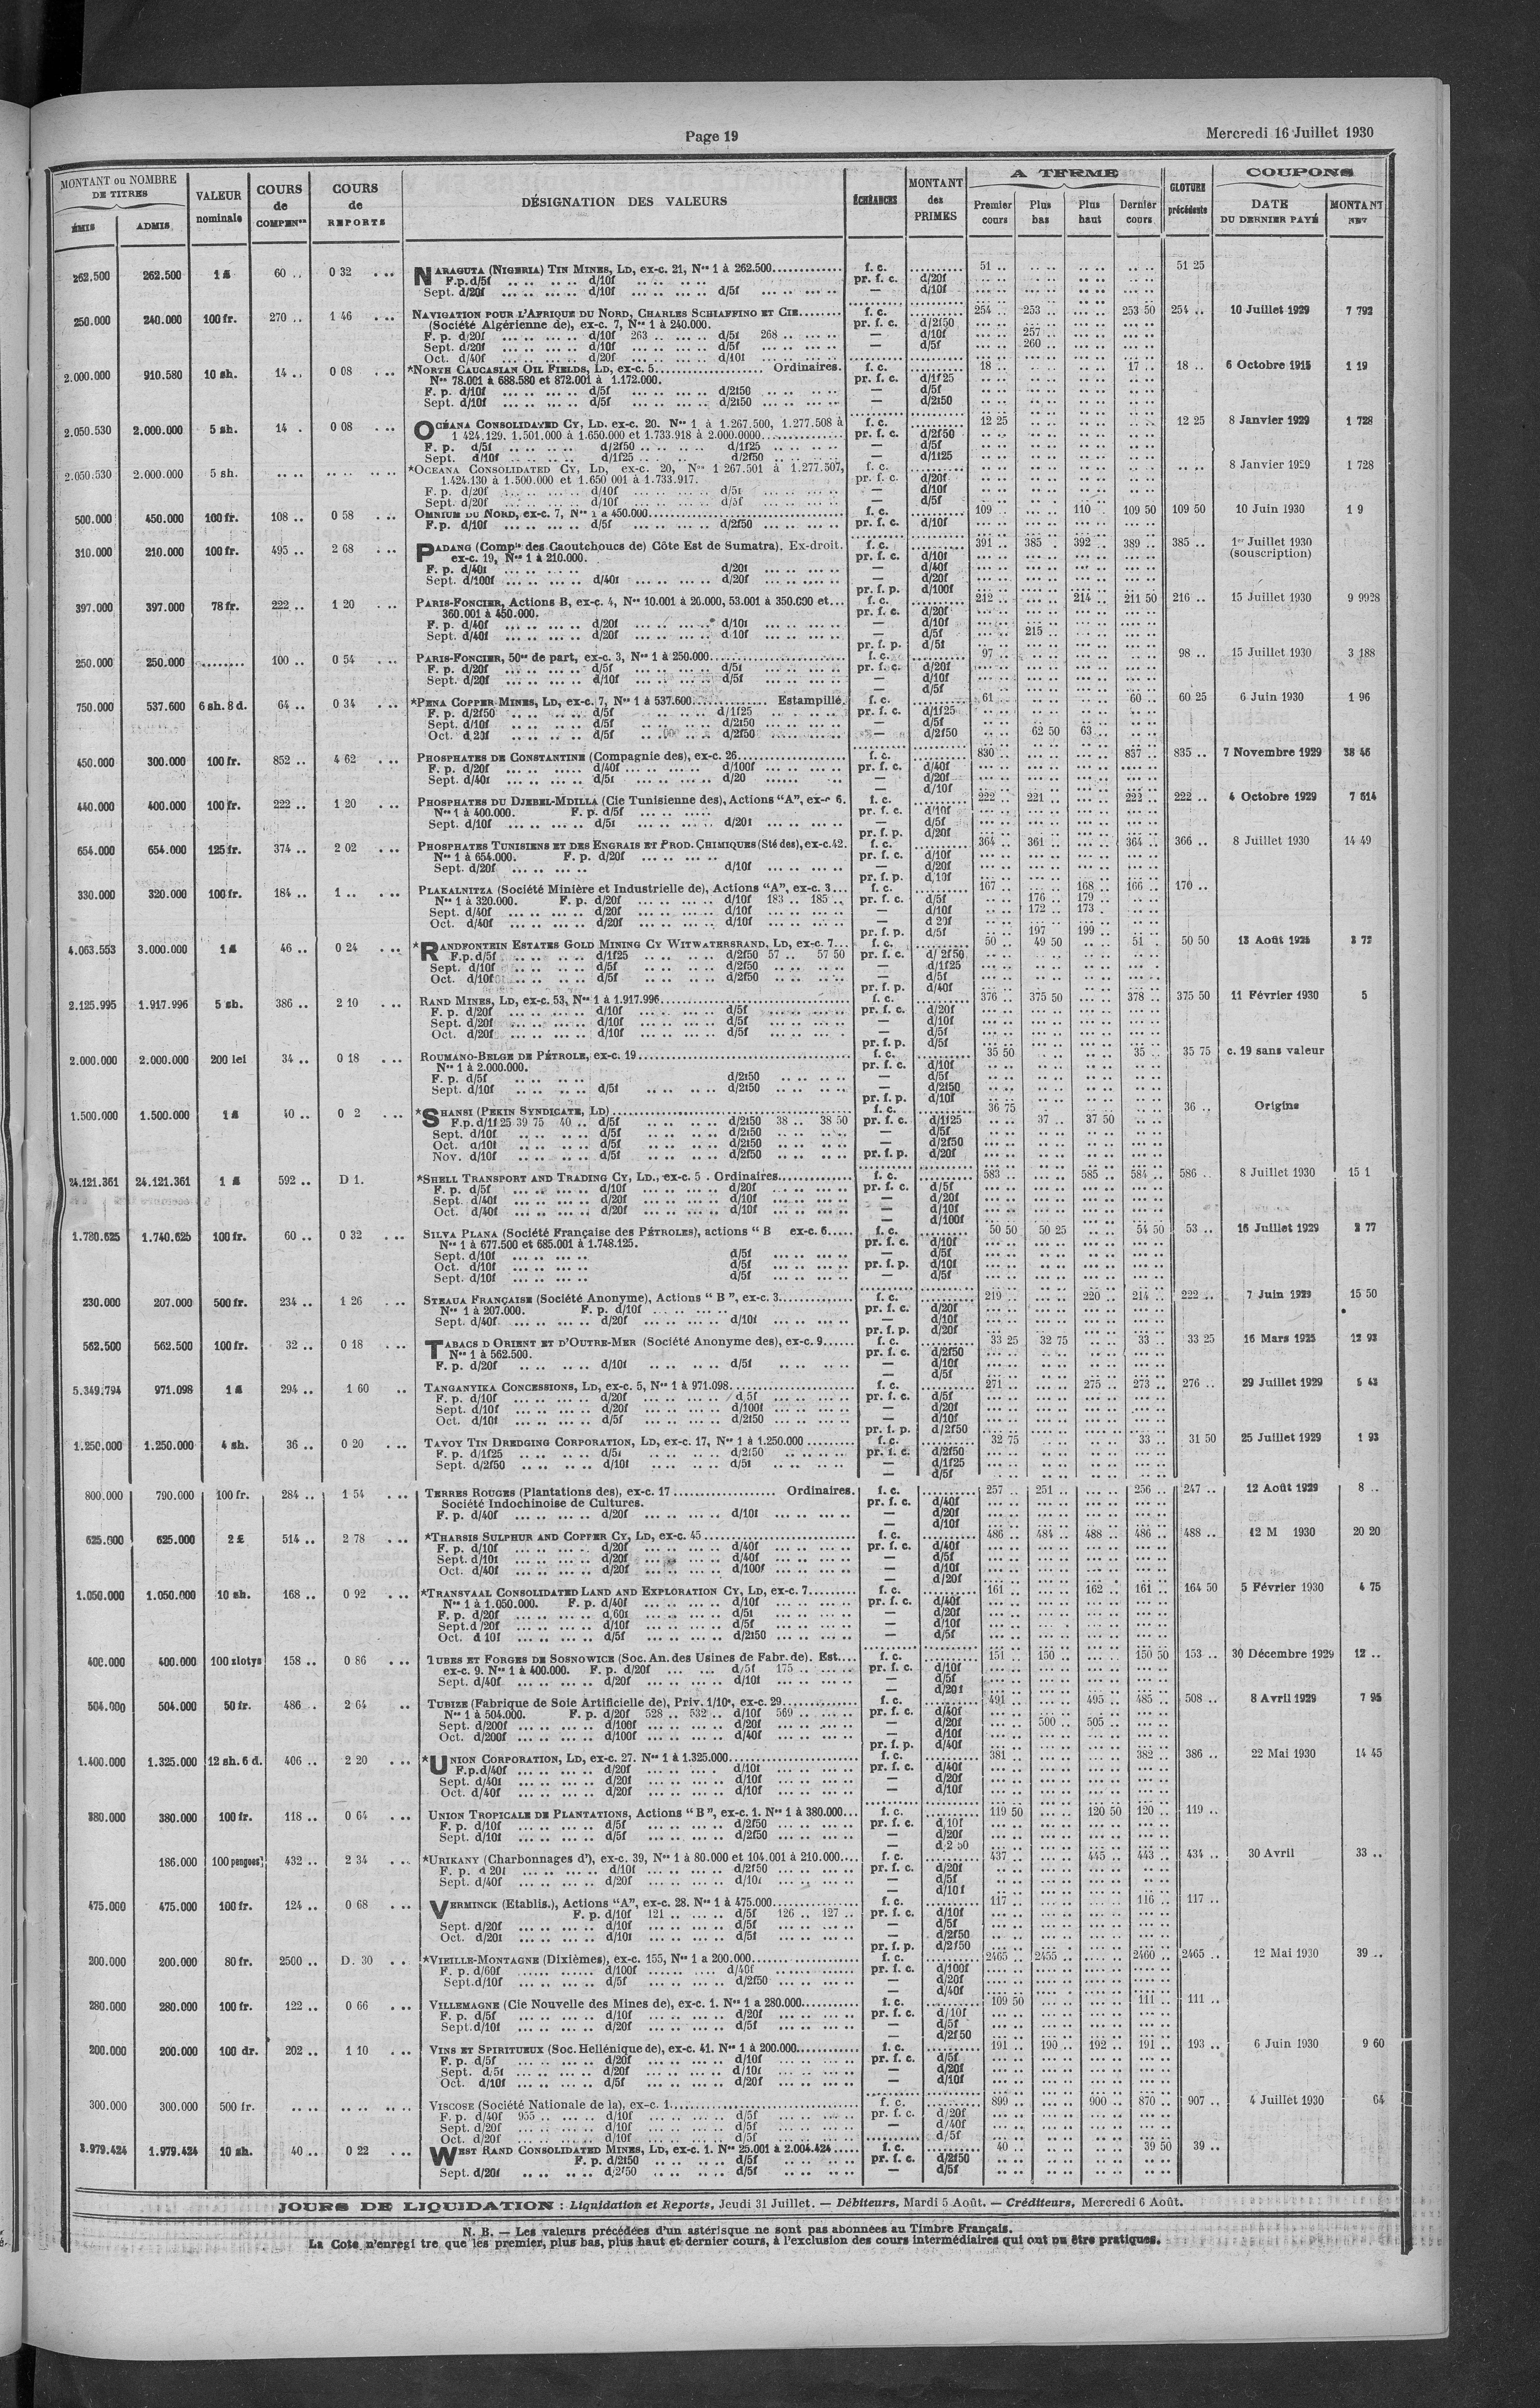 Page 19
Mercredi 16 Juillet 1930
MONTANT ou NOMBRE DE TITRES | VALEUR nominale | COURS de COMPENon | COURS de REPORTS | DÉSIGNATION DES VALEURS | ÉCHÉANCES | MONTANT des PRIMES | A TERME | CLOTURE précédente | COUPONS
ÉMIS | ADMIS | Premier cours | Plus bas | Plus haut | Dernier cours | DATE DU DERNIER PAYÉ | MONTANT NET
262.500 262.500 1 £ 60 .. 0 32 NARAGUTA (NIGERIA) TIN MINES, LD, ex-c. 21, Nos 1 à 262.500 f. c. 51 .. 51 25
F.p. d/5f d/10f pr. f. c. d/20f
Sept. d/20f d/10f d/5f — d/10f
250.000 240.000 100 fr. 270 .. 1 46 NAVIGATION POUR L'AFRIQUE DU NORD, CHARLES SCHIAFFINO ET CIE f. c. 254 .. 253 .. 253 50 254 .. 10 Juillet 1929 7 792
(Société Algérienne de), ex-c. 7, Nos 1 à 240.000. pr. f. c. d/2f50
F. p. d/20f d/10f 263 .. d/5f 268 .. — d/10f 257 ..
Sept. d/20f d/10f d/5f — d/5f 260 ..
Oct. d/40f d/20f d/10f
2.000.000 910.580 10 sh. 14 .. 0 08 *NORTH CAUCASIAN OIL FIELDS, LD, ex-c. 5 Ordinaires. f. c. 18 .. 17 .. 18 .. 6 Octobre 1915 1 19
Nos 78.001 à 688.580 et 872.001 à 1.172.000. pr. f. c. d/1f25
F. p. d/10f d/5f d/2f50 — d/5f
Sept. d/10f d/5f d/2f50 — d/2f50
2.050.530 2.000.000 5 sh. 14 . 0 08 OCÉANA CONSOLIDATED CY, LD. ex-c. 20. Nos 1 à 1.267.500, 1.277.508 à f. c. 12 25 12 25 8 Janvier 1929 1 728
1 424.129. 1.501.000 à 1.650.000 et 1.733.918 à 2.000.0000 pr. f. c. d/2f50
F. p. d/5f d/2f50 d/1f25 — d/5f
Sept. d/10f d/1f25 d/2f50 — d/1f25
2.050.530 2.000.000 5 sh. *OCEANA CONSOLIDATED CY, LD, ex-c. 20, Nos 1 267.501 à 1.277.507, f. c. 8 Janvier 1929 1 728
1.424.130 à 1.500.000 et 1.650 001 à 1.733.917. pr. f. c. d/20f
F. p. d/20f d/10f d/5f — d/10f
Sept. d/20f d/10f d/5f — d/5f
500.000 450.000 100 fr. 108 .. 0 58 OMNIUM DU NORD, ex-c. 7, Nos 1 a 450.000 f. c. 109 .. 110 .. 109 50 109 50 10 Juin 1930 1 9
F.p. d/10f d/5f d/2f50 pr. f. c. d/10f
310.000 210.000 100 fr. 495 .. 2 68 PADANG (Compie des Caoutchoucs de) Côte Est de Sumatra). Ex-droit. f. c. 391 .. 385 . 392 .. 389 .. 385 .. 1er Juillet 1930
ex-c. 19, Nos 1 à 210.000. pr. f. c. d/10f (souscription)
F. p. d/40f d/20f — d/40f
Sept. d/100f d/40f d/20f — d/20f
pr. f. p. d/100f
397.000 397.000 78 fr. 222 .. 1 20 PARIS-FONCIER, Actions B, ex-c. 4, Nos 10.001 à 26.000, 53.001 à 350.000 et f. c. 212 .. 214 .. 211 50 216 .. 15 Juillet 1930 9 9928
360.001 à 450.000. pr. f. c. d/20f
F. p. d/40f d/20f d/10f — d/10f
Sept. d/40f d/20f d 10f — d/5f 215 ..
pr. f. p. d/5f
250.000 250.000 100 .. 0 54 PARIS-FONCIER, 50es de part, ex-c. 3, Nos 1 à 250.000 f. c. 97 .. 98 .. 15 Juillet 1930 3 188
F. p. d/20f d/5f d/5f pr. f. c. d/20f
Sept. d/20f d/10f d/5f — d/10f
— d/5f
750.000 537.600 6 sh. 8 d. 64 .. 0 34 *PENA COPPER MINES, LD, ex-c. 7, Nos 1 à 537.600 Estampillé. f. c. 61 .. 60 .. 60 25 6 Juin 1930 1 96
F. p. d/2f50 d/5f d/1f25 pr. f. c. d/1f25
Sept. d/10f d/5f d/2f50 — d/5f
Oct. d 20f d/5f d/2f50 — d/2f50 62 50 63 ..
450.000 300.000 100 fr. 852 .. 4 62 PHOSPHATES DE CONSTANTINE (Compagnie des), ex-c. 26 f. c. 830 .. 837 .. 835 .. 7 Novembre 1929 38 46
F. p. d/20f d/40f d/100f pr. f. c. d/40f
Sept. d/40f d/5f d/20 — d/20f
— d/10f
440.000 400.000 100 fr. 222 .. 1 20 PHOSPHATES DU DJEBEL-MDILLA (Cie Tunisienne des), Actions "A", ex-c 6. f. c. 222 .. 221 .. 222 .. 222 .. 4 Octobre 1929 7 514
Nos 1 à 400.000. F. p. d/5f pr. f. c. d/10f
Sept. d/10f d/5f d/20f — d/5f
pr. f. p. d/20f
654.000 654.000 125 fr. 374 .. 2 02 PHOSPHATES TUNISIENS ET DES ENGRAIS ET PROD. CHIMIQUES (Sté des), ex-c. 42. f. c. 364 .. 361 .. 364 .. 366 .. 8 Juillet 1930 14 49
Nos 1 à 654.000. F. p. d/20f pr. f. c. d/10f
Sept. d/20f d/10f — d/20f
pr. f. p. d/10f
330.000 320.000 100 fr. 184 .. 1 .. PLAKALNITZA (Société Minière et Industrielle de), Actions "A", ex-c. 3 f. c. 167 .. 168 .. 166 .. 170 ..
Nos 1 à 320.000. F. p. d/20f d/10f 183 .. 185 .. pr. f. c. d/5f 176 .. 179 ..
Sept. d/40f d/20f d/10f — d/10f 172 .. 173 .
Oct. d/40f d/20f d/10f — d 20f
pr. f. p. d/5f 197 199 ..
4.063.553 3.000.000 1 £ 46 .. 0 24 *RANDFONTEIN ESTATES GOLD MINING CY WITWATERSRAND, LD, ex-c. 7 f. c. 50 .. 49 50 51 . 50 50 13 Août 1925 3 72
F.p. d/5f d/1f25 d/2f50 57 .. 57 50 pr. f. c. d/2f50
Sept. d/10f d/5f d/2f50 — d/1f25
Oct. d/10f d/5f d/2f50 — d/5f
pr. f. p. d/40f
2.125.995 1.917.996 5 sh. 386 .. 2 10 RAND MINES, LD, ex-c. 53, Nos 1 à 1.917.996 f. c. 376 .. 375 50 378 .. 375 50 11 Février 1930 5
F. p. d/20f d/10f d/5f pr. f. c. d/20f
Sept. d/20f d/10f d/5f — d/10f
Oct. d/20f d/10f d/5f — d/5f
pr. f. p. d/5f
2.000.000 2.000.000 200 lei 34 .. 0 18 ROUMANO-BELGE DE PÉTROLE, ex-c. 19 f. c. 35 50 35 .. 35 75 c. 19 sans valeur
Nos 1 à 2.000.000. pr. f. c. d/10f
F. p. d/5f d/2f50 — d/5f
Sept. d/10f d/5f d/2f50 — d/2f50
pr. f. p. d/10f
1.500.000 1.500.000 1 £ 40 .. 0 2 *SHANSI (PEKIN SYNDICATE, LD) f. c. 36 75 36 .. Origine
F.p. d/1f25 39 75 40 .. d/5f d/2f50 38 .. 38 50 pr. f. c. d/1f25 37 .. 37 50
Sept. d/10f d/5f d/2f50 — d/5f
Oct. d/10f d/5f d/2f50 — d/2f50
Nov. d/10f d/5f d/2f50 pr. f. p. d/20f
24.121.361 24.121.361 1 £ 592 .. D 1. *SHELL TRANSPORT AND TRADING CY, LD., ex-c. 5 . Ordinaires f. c. 583 .. 585 .. 584 .. 586 .. 8 Juillet 1930 15 1
F. p. d/5f d/10f d/20f pr. f. c. d/5f
Sept. d/40f d/20f d/10f — d/20f
Oct. d/40f d/20f d/10f — d/10f
— d/100f
1.780.625 1.740.625 100 fr. 60 .. 0 32 SILVA PLANA (Société Française des PÉTROLES), actions " B ex-c. 6 f. c. 50 50 50 25 54 50 53 .. 16 Juillet 1929 3 77
Nos 1 à 677.500 et 685.001 à 1.748.125. pr. f. c. d/10f
Sept. d/10f d/5f — d/5f
Oct. d/10f d/5f pr. f. p. d/10f
Sept. d/10f d/5f — d/5f
230.000 207.000 500 fr. 234 .. 1 26 STEAUA FRANÇAISE (Société Anonyme), Actions " B ", ex-c. 3 f. c. 219 .. 220 .. 214 .. 222 .. 7 Juin 1929 15 50
Nos 1 à 207.000. F. p. d/10f pr. f. c. d/20f
Sept. d/40f d/20f d/10f — d/10f
pr. f. p. d/20f
562.500 562.500 100 fr. 32 .. 0 18 TABACS D ORIENT ET D'OUTRE-MER (Société Anonyme des), ex-c. 9 f. c. 33 25 32 75 33 .. 33 25 16 Mars 1925 12 93
Nos 1 à 562.500. pr. f. c. d/2f50
F. p. d/20f d/10f d/5f — d/10f
— d/5f
5.349.794 971.098 1 £ 294 .. 1 60 TANGANYIKA CONCESSIONS, LD, ex-c. 5, Nos 1 à 971.098 f. c. 271 .. 275 .. 273 .. 276 .. 29 Juillet 1929 5 43
F. p. d/10f d/20f d 5f pr. f. c. d/5f
Sept. d/10f d/20f d/100f — d/20f
Oct. d/10f d/5f d/2f50 — d/10f
pr. f. p. d/2f50
1.250.000 1.250.000 4 sh. 36 .. 0 20 TAVOY TIN DREDGING CORPORATION, LD, ex-c. 17, Nos 1 à 1.250.000 f. c. 32 75 33 .. 31 50 25 Juillet 1929 1 93
F. p. d/1f25 d/5f d/2f50 pr. f. c. d/2f50
Sept. d/2f50 d/10f d/5f — d/1f25
— d/5f
800.000 790.000 100 fr. 284 .. 1 54 TERRES ROUGES (Plantations des), ex-c. 17 Ordinaires. f. c. 257 .. 251 .. 256 .. 247 .. 12 Août 1929 8 ..
Société Indochinoise de Cultures. pr. f. c. d/40f
F. p. d/40f d/20f d/10f — d/20f
— d/10f
625.000 625.000 2 £ 514 .. 2 78 *THARSIS SULPHUR AND COPPER CY, LD, ex-c. 45 f. c. 486 .. 484 .. 488 .. 486 .. 488 .. 12 M 1930 20 20
F. p. d/10f d/20f d/40f pr. f. c. d/40f
Sept. d/10f d/20f d/40f — d/5f
Oct. d/40f d/20f d/100f — d/10f
— d/20f
1.050.000 1.050.000 10 sh. 168 .. 0 92 *TRANSVAAL CONSOLIDATED LAND AND EXPLORATION CY, LD, ex-c. 7 f. c. 161 .. 162 . 161 .. 164 50 5 Février 1930 4 75
Nos 1 à 1.050.000. F. p. d/40f d/10f pr. f. c. d/40f
F. p. d/20f d 60f d/5f — d/20f
Sept. d /20f d/10f d/5f — d/10f
Oct. d 10f d/5f d/2f50 — d/5f
400.000 400.000 100 zlotys 158 .. 0 86 TUBES ET FORGES DE SOSNOWICE (Soc. An. des Usines de Fabr. de). Est. f. c. 151 .. 150 .. 150 50 153 .. 30 Décembre 1929 12 ..
ex-c. 9. Nos 1 à 400.000. F. p. d/20f d/5f 175 .. pr. f. c. d/10f
Sept. d/40f d/20f d/10f — d/5f
— d/20f
504.000 504.000 50 fr. 486 . 2 64 TUBIZE (Fabrique de Soie Artificielle de), Priv. 1/10e, ex-c. 29 f. c. 491 .. 495 .. 485 .. 508 .. 8 Avril 1929 7 95
Nos 1 à 504.000. F. p. d/20f 528 .. 532 .. d/10f 569 .. pr. f. c. d/40f
Sept. d/200f d/100f d/20f — d/20f 500 .. 505 ..
Oct. d/200f d/100f d/40f — d/10f
pr. f. p. d/40f
1.400.000 1.325.000 12 sh. 6 d. 406 .. 2 20 *UNION CORPORATION, LD, ex-c. 27. Nos 1 à 1.325.000 f. c. 381 .. 382 .. 386 .. 22 Mai 1930 14 45
F.p. d/40f d/20f d/10f pr. f. c. d/40f
Sept. d/40f d/20f d/10f — d/20f
Oct. d/40f d/20f d/10f — d/10f
380.000 380.000 100 fr. 118 .. 0 64 UNION TROPICALE DE PLANTATIONS, Actions "B", ex-c. 1. Nos 1 à 380.000 f. c. 119 50 120 50 120 .. 119 ..
F. p. d/10f d/5f d/2f50 pr. f. c. d/10f
Sept. d/10f d/5f d/2f50 — d/20f
— d 2 50
186.000 100 pengoes 432 .. 2 34 *URIKANY (Charbonnages d'), ex-c. 39, Nos 1 à 80.000 et 104.001 à 210.000 f. c. 437 .. 445 .. 443 .. 434 .. 30 Avril 33 ..
F. p. d 20f d/10f d/2f50 pr. f. c. d/20f
Sept. d/40f d/20f d/10f — d/5f
— d/10f
475.000 475.000 100 fr. 124 .. 0 68 VERMINCK (Etablis.), Actions "A", ex-c. 28. Nos 1 à 475.000 f. c. 117 .. 116 .. 117 ..
F. p. d/10f 121 .. d/5f 126 .. 127 .. pr. f. c. d/10f
Sept. d/20f d/10f d/5f — d/5f
Oct. d/20f d/10f d/5f — d/2f50
pr. f. p. d/2f50
200.000 200.000 80 fr. 2500 .. D. 30 *VIEILLE-MONTAGNE (Dixièmes), ex-c. 155, Nos 1 a 200.000 f. c. 2465 .. 2455 .. 2460 .. 2465 .. 12 Mai 1930 39 ..
F. p. d/60f d/100f d/40f pr. f. c. d/100f
Sept. d/10f d/5f d/2f50 — d/20f
— d/40f
280.000 280.000 100 fr. 122 .. 0 66 VILLEMAGNE (Cie Nouvelle des Mines de), ex-c. 1. Nos 1 a 280.000 f. c. 109 50 111 .. 111 ..
F. p. d/5f d/10f d/20f pr. f. c. d/10f
Sept. d/10f d/20f d/5f — d/5f
— d/2f50
200.000 200.000 100 dr. 202 .. 1 10 VINS ET SPIRITUEUX (Soc. Hellénique de), ex-c. 41. Nos 1 à 200.000 f. c. 191 .. 190 .. 192 .. 191 .. 193 .. 6 Juin 1930 9 60
F. p. d/5f d/20f d/10f pr. f. c. d/5f
Sept. d/5f d/20f d/10f — d/20f
Oct. d/10f d/5f d/20f — d/10f
300.000 300.000 500 fr. VISCOSE (Société Nationale de la), ex-c. 1 f. c. 899 .. 900 .. 870 .. 907 .. 4 Juillet 1930 64
F. p. d/40f 955 .. d/10f d/5f pr. f. c. d/20f
Sept. d/20f d/10f d/5f — d/40f
Oct. d/20f d/10f d/5f d/5f
3.979.424 1.979.424 10 sh. 40 .. 0 22 WEST RAND CONSOLIDATED MINES, LD, ex-c. 1. Nos 25.001 à 2.004.424 f. c. 40 .. 39 50 39 ..
F. p. d/2f50 d/5f pr. f. c. d/2f50
Sept. d/20f d/2f50 d/5f — d/5f
JOURS DE LIQUIDATION : Liquidation et Reports, Jeudi 31 Juillet. — Débiteurs, Mardi 5 Août. — Créditeurs, Mercredi 6 Août.
N. B. — Les valeurs précédées d'un astérisque ne sont pas abonnées au Timbre Français.
La Cote n'enregi tre que les premier, plus bas, plus haut et dernier cours, à l'exclusion des cours intermédiaires qui ont pu être pratiques.